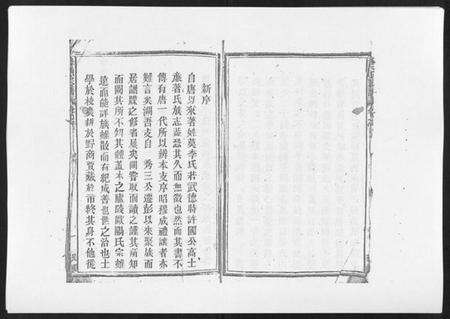 新序
自唐以來著姓莫李氏若武德特許國公高士
廉著氏族志蓋恐其久而無徵也然而其書不
傳有唐一代所以辨本支序昭穆成禮讓者亦
難言矣湖吾支自 秀三公遷彭以來聚族而
居譜牒之修者屢矣間嘗取而讀之謹其所知
而闕其所不知其體蓋本之廬陵歐陽氏宗雖
遠而能詳族雖散而有紀成善也世之治也士
學於校農耕於野商賈藏於市終其身不他徙